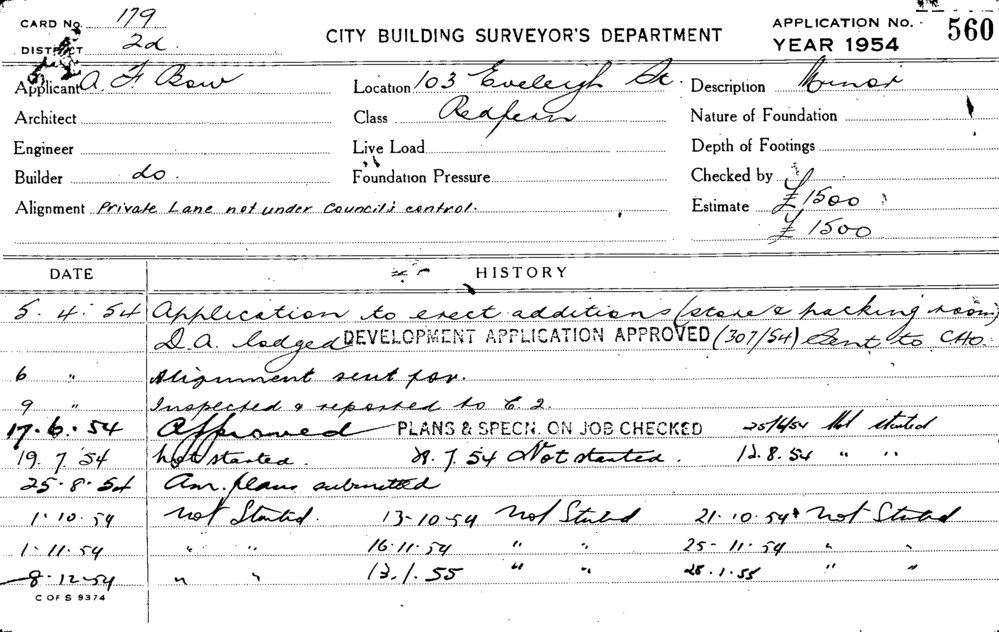 CARD No. 179
DISTRICT 2d.
CITY BUILDING SURVEYOR'S DEPARTMENT
APPLICATION No. - 560
YEAR 1954
Applicant A. F. Bow
Location 103 Eveleigh St.
Description Minor
Architect
Class Redfern
Nature of Foundation
Engineer
Live Load
Depth of Footings
Builder do.
Foundation Pressure
Checked by
Alignment Private Lane not under Council's control.
Estimate £1500
£1500
DATE HISTORY
5. 4. 54 Application to erect additions (store & packing room)
D.A. lodged DEVELOPMENT APPLICATION APPROVED (307/54) Sent to CHO.
6 " Alignment sent for.
9 " Inspected & reported to C.2.
17. 6. 54 Approved PLANS & SPECN. ON JOB CHECKED 25/6/54 Not started
19. 7. 54 Not started. 7. 54 Not started. 12. 8. 54 " "
25. 8. 54 Am. plans submitted
1. 10. 54 Not Started. 13-10-54 Not Started 21. 10. 54 Not Started
1. 11. 54 " " 16. 11. 54 " " 25- 11. 54 " "
8. 12. 54 " " 13. 1. 55 " " 28. 1. 55 " "
C OF S 9374